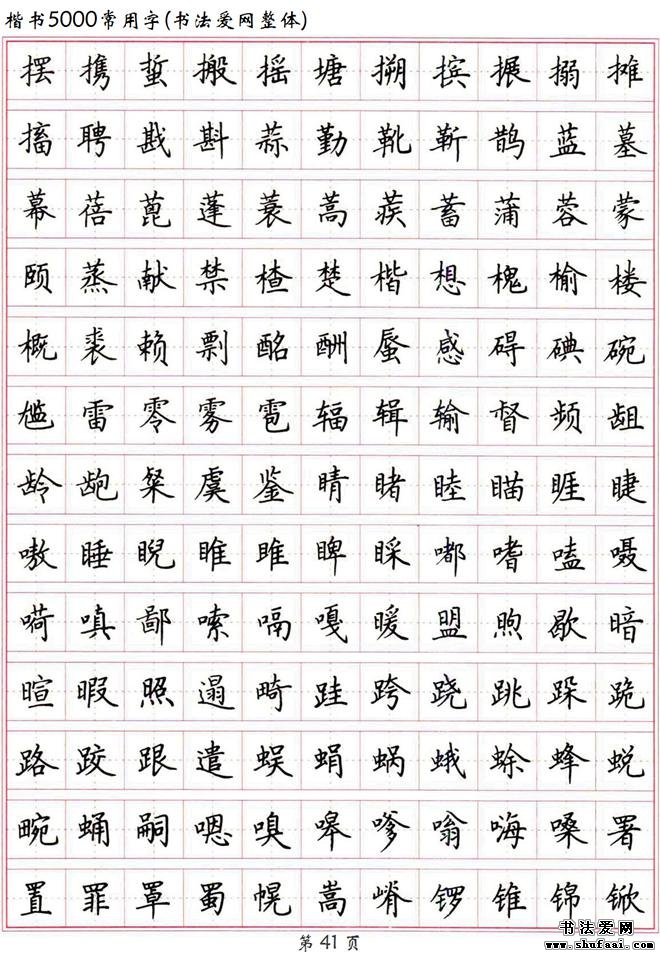 楷书5000常用字(书法爱网整体)
摆携蜇搬摇塘搠摈搌搦摊
搐聘戡斟蒜勤靴靳鹊蓝墓
幕蓓蓖蓬蓑蒿蒺蓄蒲蓉蒙
颐蒸献禁楂楚楷想槐榆楼
概裘赖剽酩酬蜃感碍碘碗
尴雷零雾雹辐辑输督频龃
龄龅粲虞鉴睛睹睦瞄睚睫
嗷睡睨雎睢睥睬嘟嗜嗑嗫
嗬嗔鄙嗦嗝嘎暖盟煦歇暗
暄暇照遢畸跬跨跷跳跺跪
路跤跟遣蜈蜎蜗蛾蜍蜂蜕
畹蛹嗣嗯嗅嗥嗲嗡嗨嗓署
置罪罩蜀幌嵩嵴锣锥锦锨
第 41 页
书法爱网
www.shufaai.com